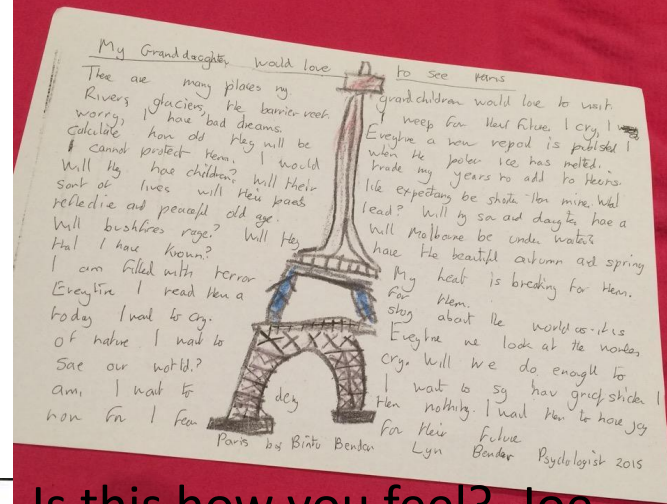 My Granddaughter would love to see Paris
There are many places my grandchildren would love to visit
Rivers, glaciers, the barrier reef. I weep for their future. I cry, I
worry, I have bad dreams. Everytime a new report is published I
calculate how old they will be when the polar ice has melted.
I cannot protect them. I would trade my years to add to theirs.
Will they have children? Will their life expectancy be shorter than mine. What
sort of lives will their parents lead? Will my son and daughter have a
reflective and peaceful old age. Will Melbourne be under water?
Will bushfires rage? Will they have the beautiful autumn and spring
that I have known? My heart is breaking for them.
I am filled with terror for them.
Everytime I read them a story about the world as it is
today I want to cry. Everytime we look at the wonders
of nature I want to cry. Will we do enough to
save our world?
I want to say how grief stricken I
am, I want to deny them nothing. I want them to have joy
now for I fear for their future
Paris by Bintu Bender Lyn Bender Psychologist 2015
Is this how you feel? Joe